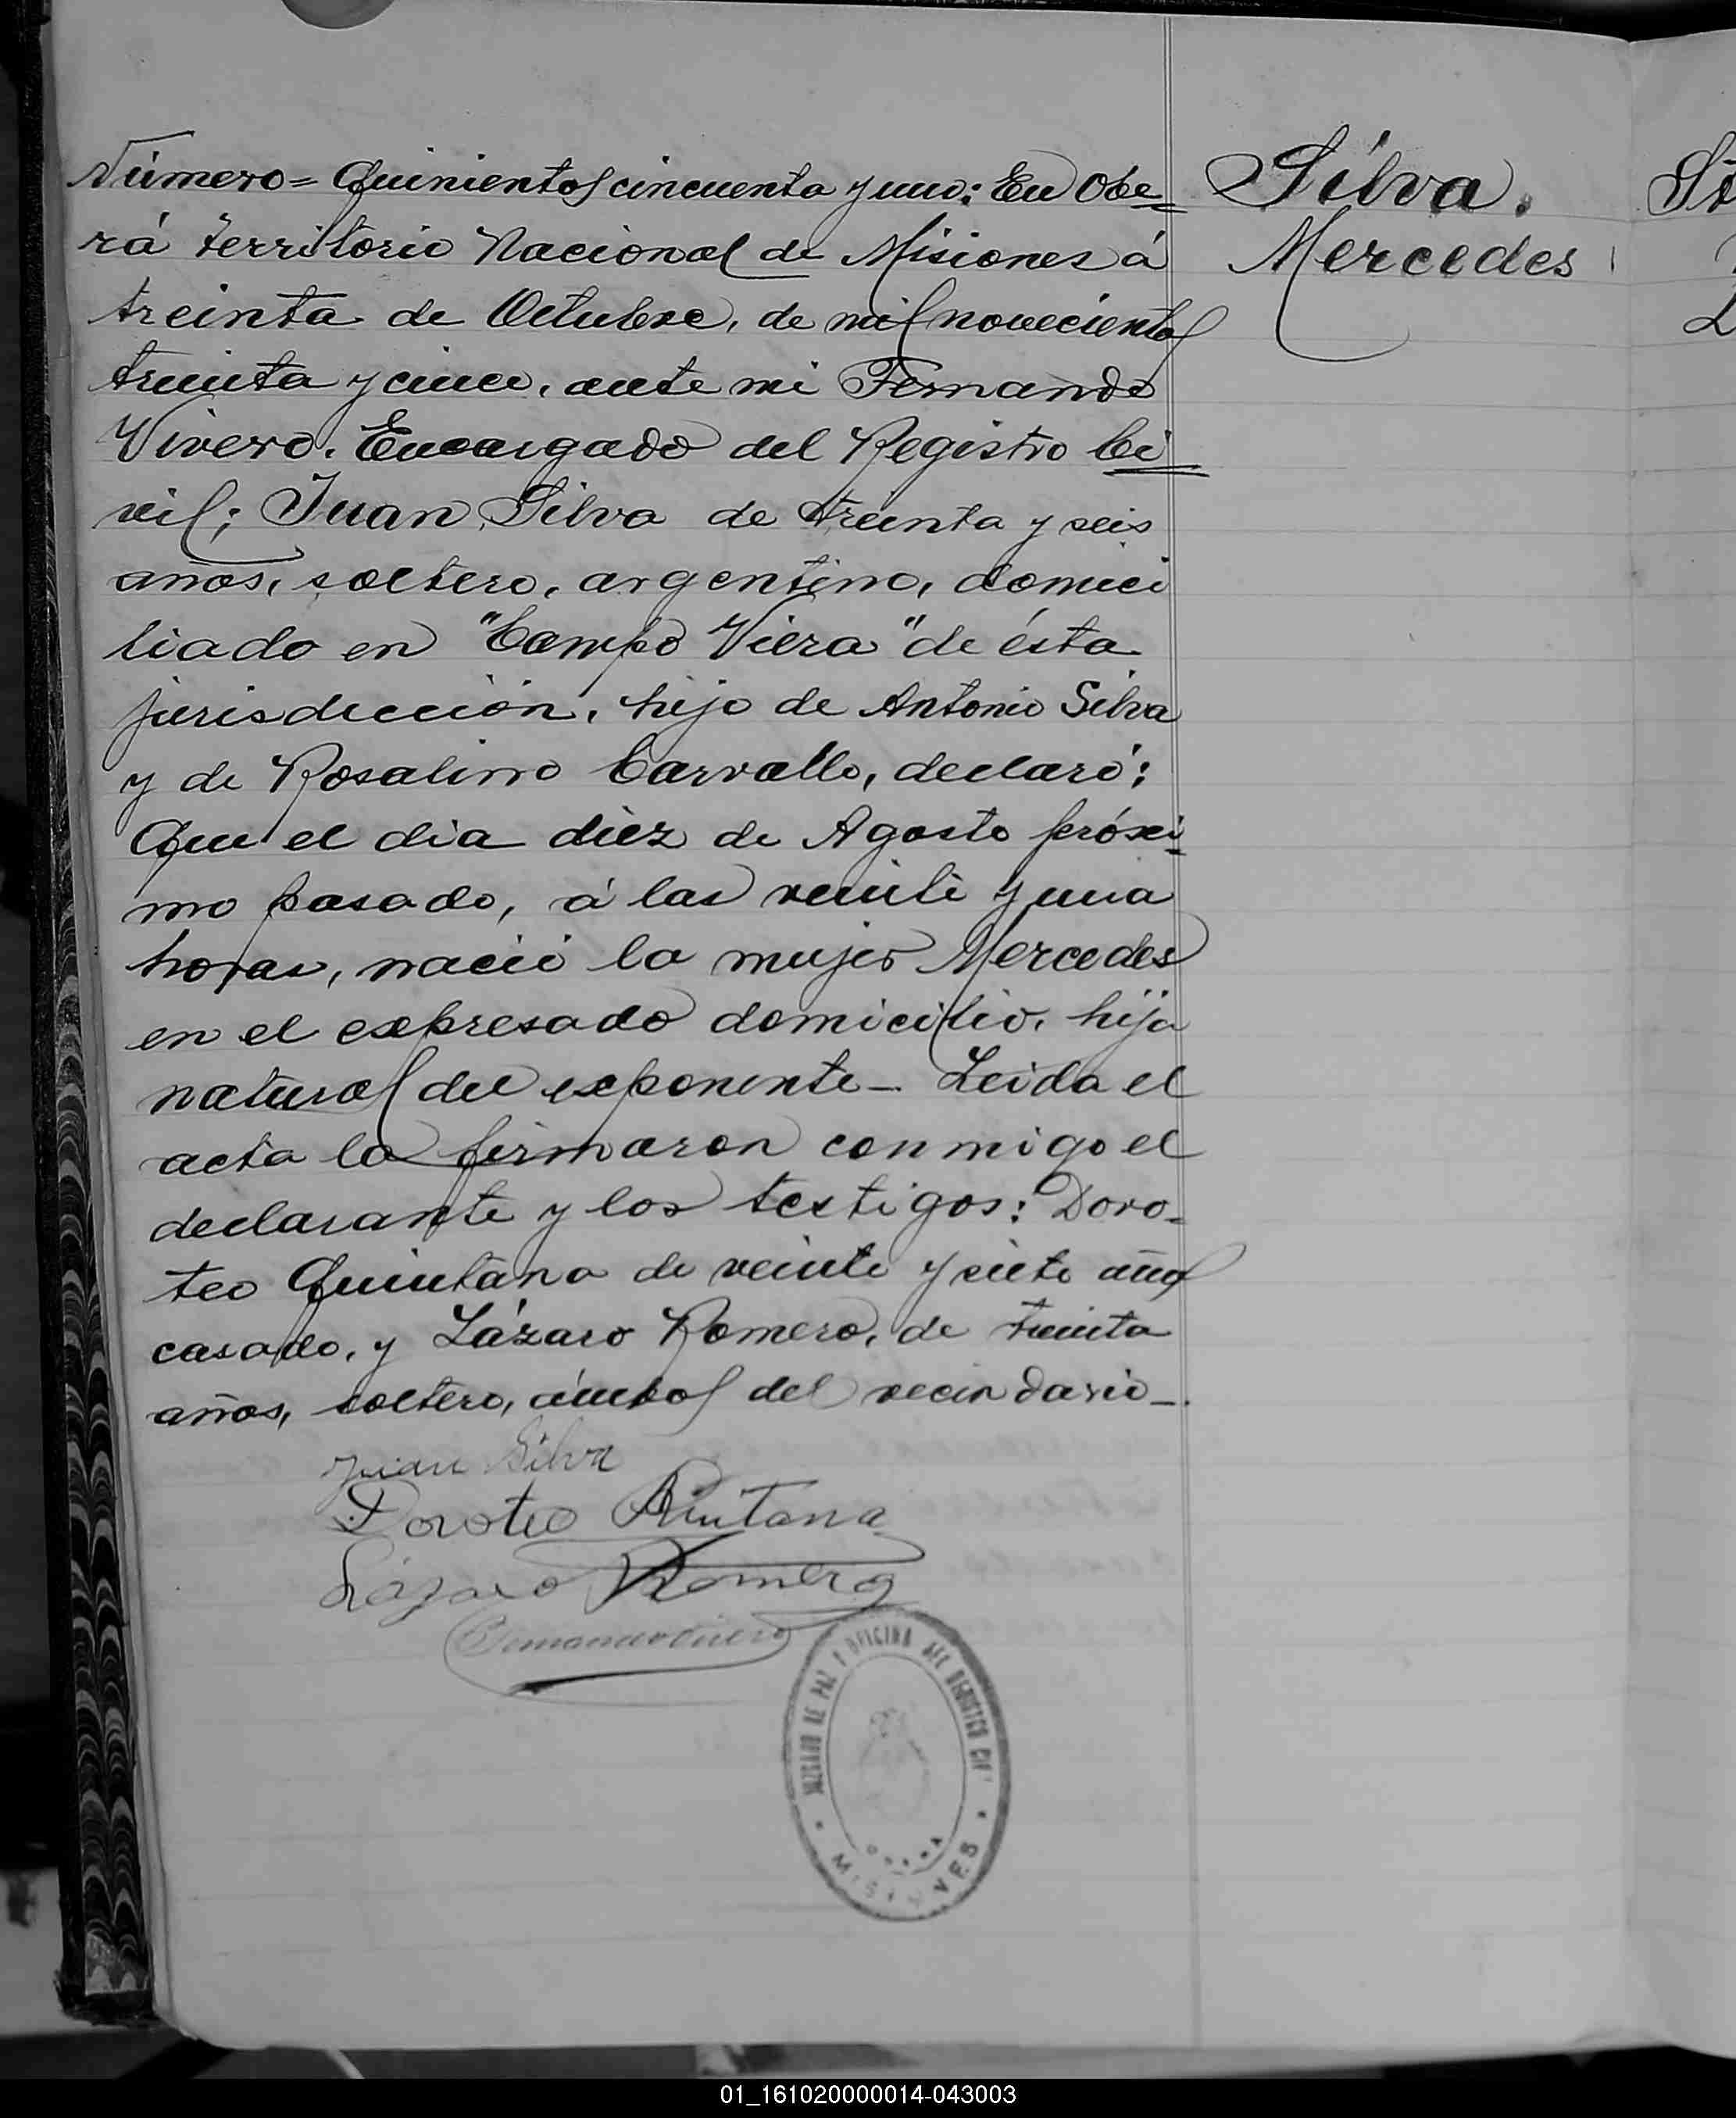 Número = Quinientos cincuenta y uno: En Obe=
rá territorio Nacional de Misiones á
treinta de Octubre, de mil novecientos
treinta y cinco, ante mi Fernando
Vivero. Encargado del Registro Ci
vil; Juan Silva de treinta y seis
años, soltero, argentino, domici
liado en "Campo Viera" de ésta
jurisdicción, hijo de Antonio Silva
y de Rosalino Carvallo, declaró:
Que el dia diez de Agosto próxi=
mo pasado, á las veinte y una
horas, nació la mujer Mercedes
en el expresado domicilio, hija
natural del exponente - Leida el
acta la firmaron conmigo el
declarante y los testigos: Doro-
teo Quintana de veinte y siete años
casado, y Lázaro Romero, de treinta
años, soltero, ámbos del vecindario -.
Juan Silva
Doroteo Quintana
Lázaro Romero
Fernando Vivero
JUZGADO DE PAZ Y OFICINA DEL REGISTRO CIV
MISIONES
Silva.
Mercedes
01_161020000014-043003